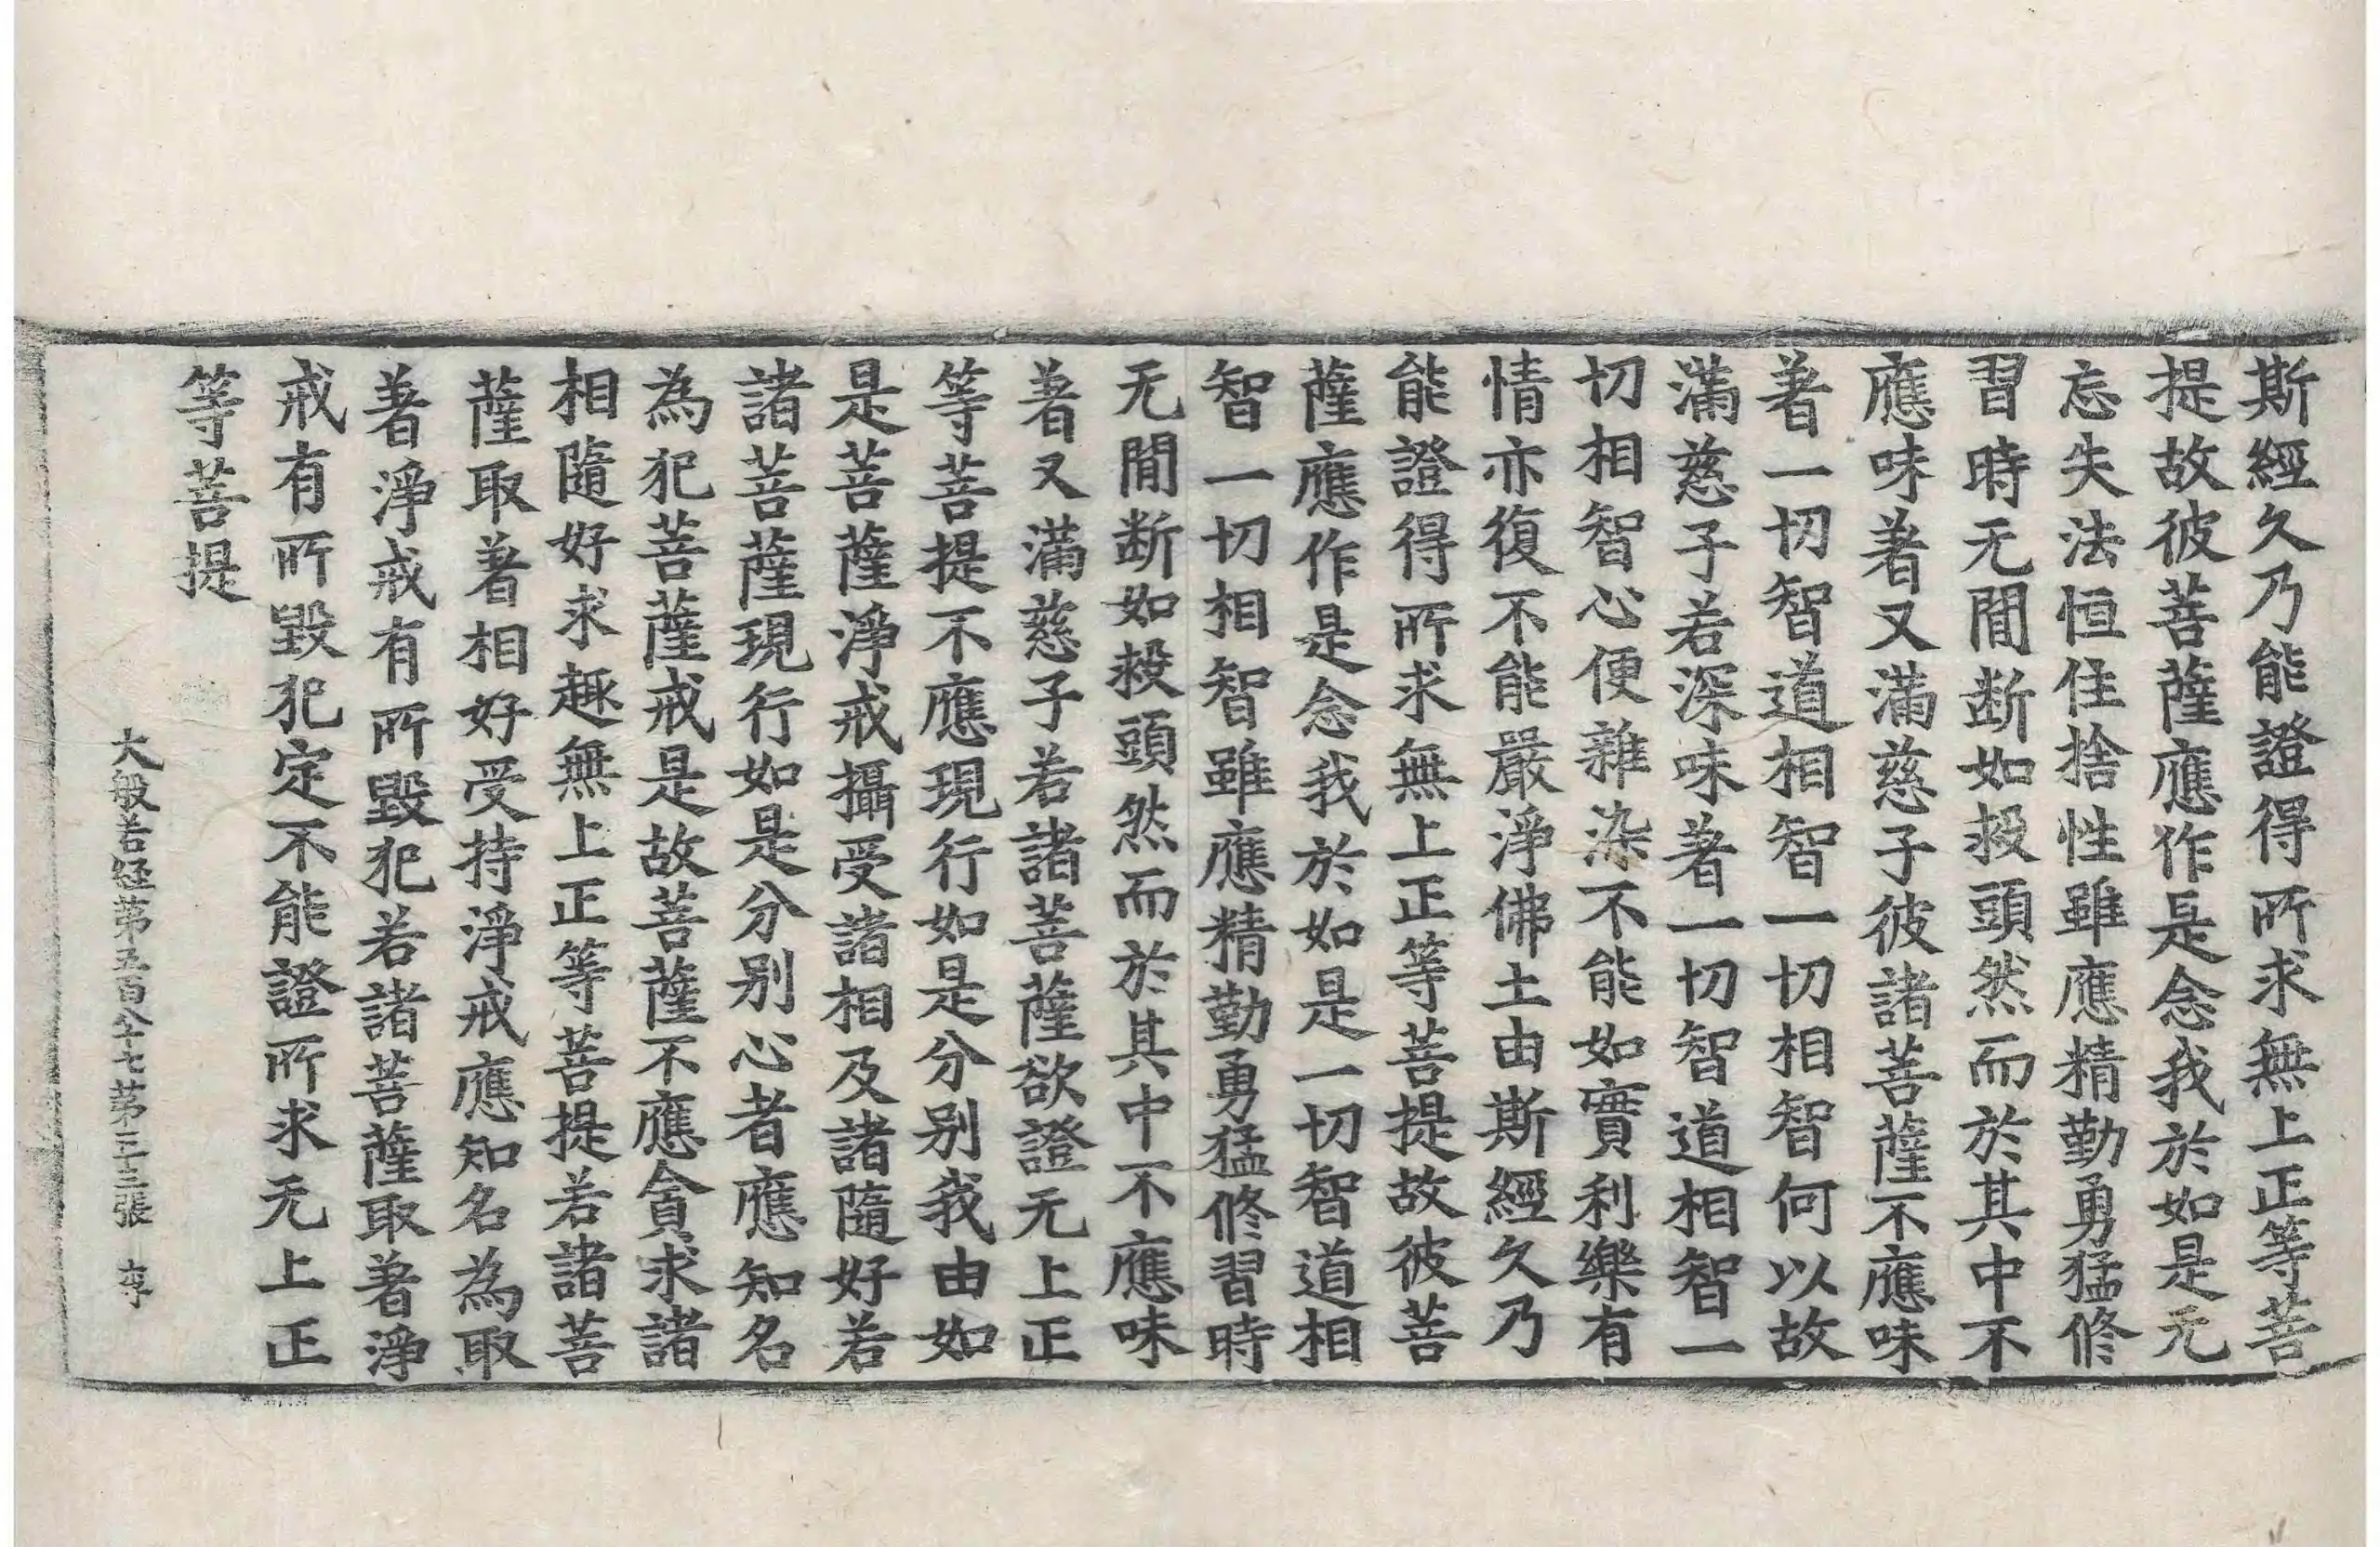 斯經久乃能證得所求無上正等菩
提故彼菩薩應作是念我於如是无
忘失法恒住捨性雖應精勤勇猛修
習時无閒断如投頭然而於其中不
應味著又滿慈子彼諸菩薩不應味
著一切智道相智一切相智何以故
滿慈子若深味著一切智道相智一
切相智心便雜染不能如實利樂有
情亦復不能嚴淨佛土由斯經久乃
能證得所求無上正等菩提故彼菩
薩應作是念我於如是一切智道相
智一切相智雖應精勤勇猛修習時
无閒断如投頭然而於其中不應味
著又滿慈子若諸菩薩欲證无上正
等菩提不應現行如是分別我由如
是菩薩淨戒攝受諸相及諸隨好若
諸菩薩現行如是分別心者應知名
為犯菩薩戒是故菩薩不應貪求諸
相隨好求趣無上正等菩提若諸菩
薩取著相好受持淨戒應知名為取
著淨戒有所毀犯若諸菩薩取著淨
戒有所毀犯定不能證所求无上正
等菩提
大般若経苐五百八十七苐三張